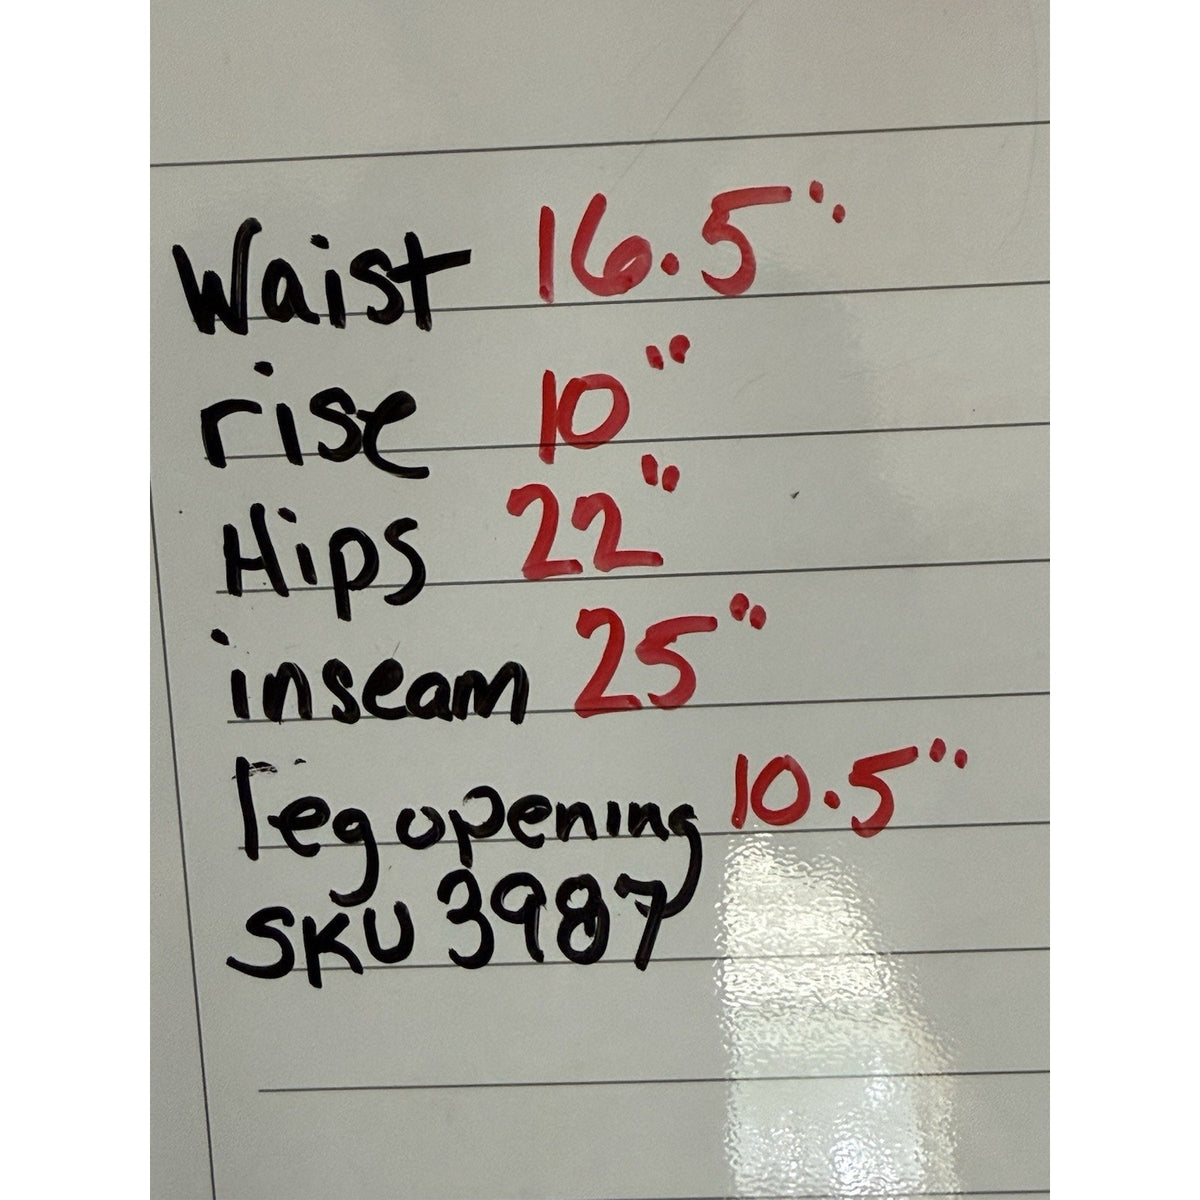 Waist 16.5"
rise 10"
Hips 22"
inseam 25"
leg opening 10.5"
SKU 3987